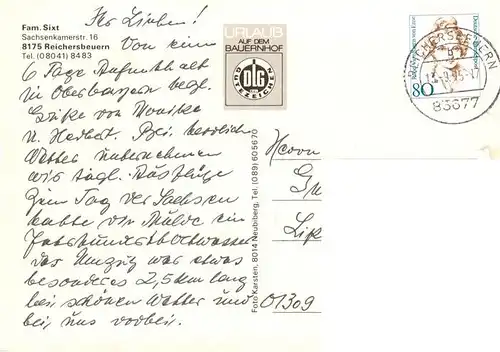 Fam. Sixt
Sachsenkamerstr. 16
8175 Reichersbeuern
Tel. (08041) 8483
Ihr Lieben!
Von einem
6 Tage Aufenthalt
in Oberbayern herzl.
Grüße von Monika
u. Herbert. Bei herrlichem
Wetter unternehmen
wir tägl. Ausflüge
Zum Tag der Sachsen
hatte die Mulde ein
Jahrhunderthochwasser
der Umzug war etwas
besonderes 2,5 km lang
bei schönen Wetter und
bei uns vorbei.
URLAUB
AUF DEM
BAUERNHOF
DLG
GÜTEZEICHEN
Foto Karsten, 8014 Neubiberg, Tel. (089) 605670
80
83677
Herrn
01309